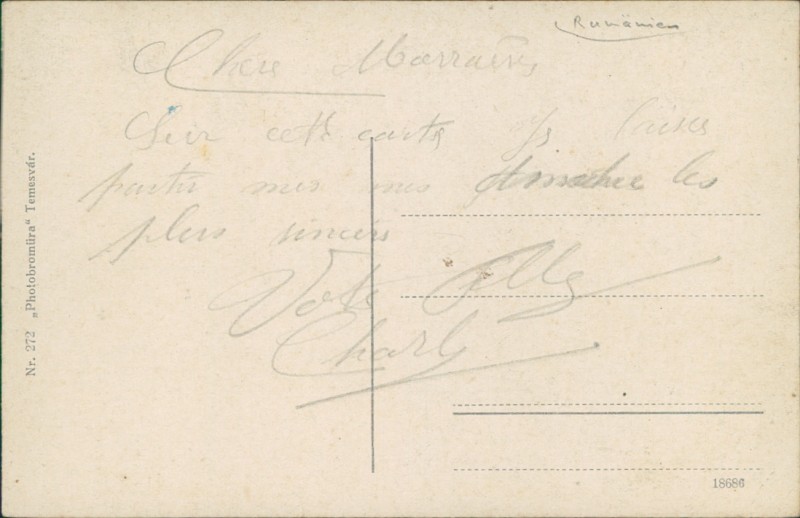 Rumänien
Chère Marraine
Sur cette carte je laisse
partir mes mes les
plus sincers
Votre
Charly
Nr. 272 „Photobromüra“ Temesvár.
18686